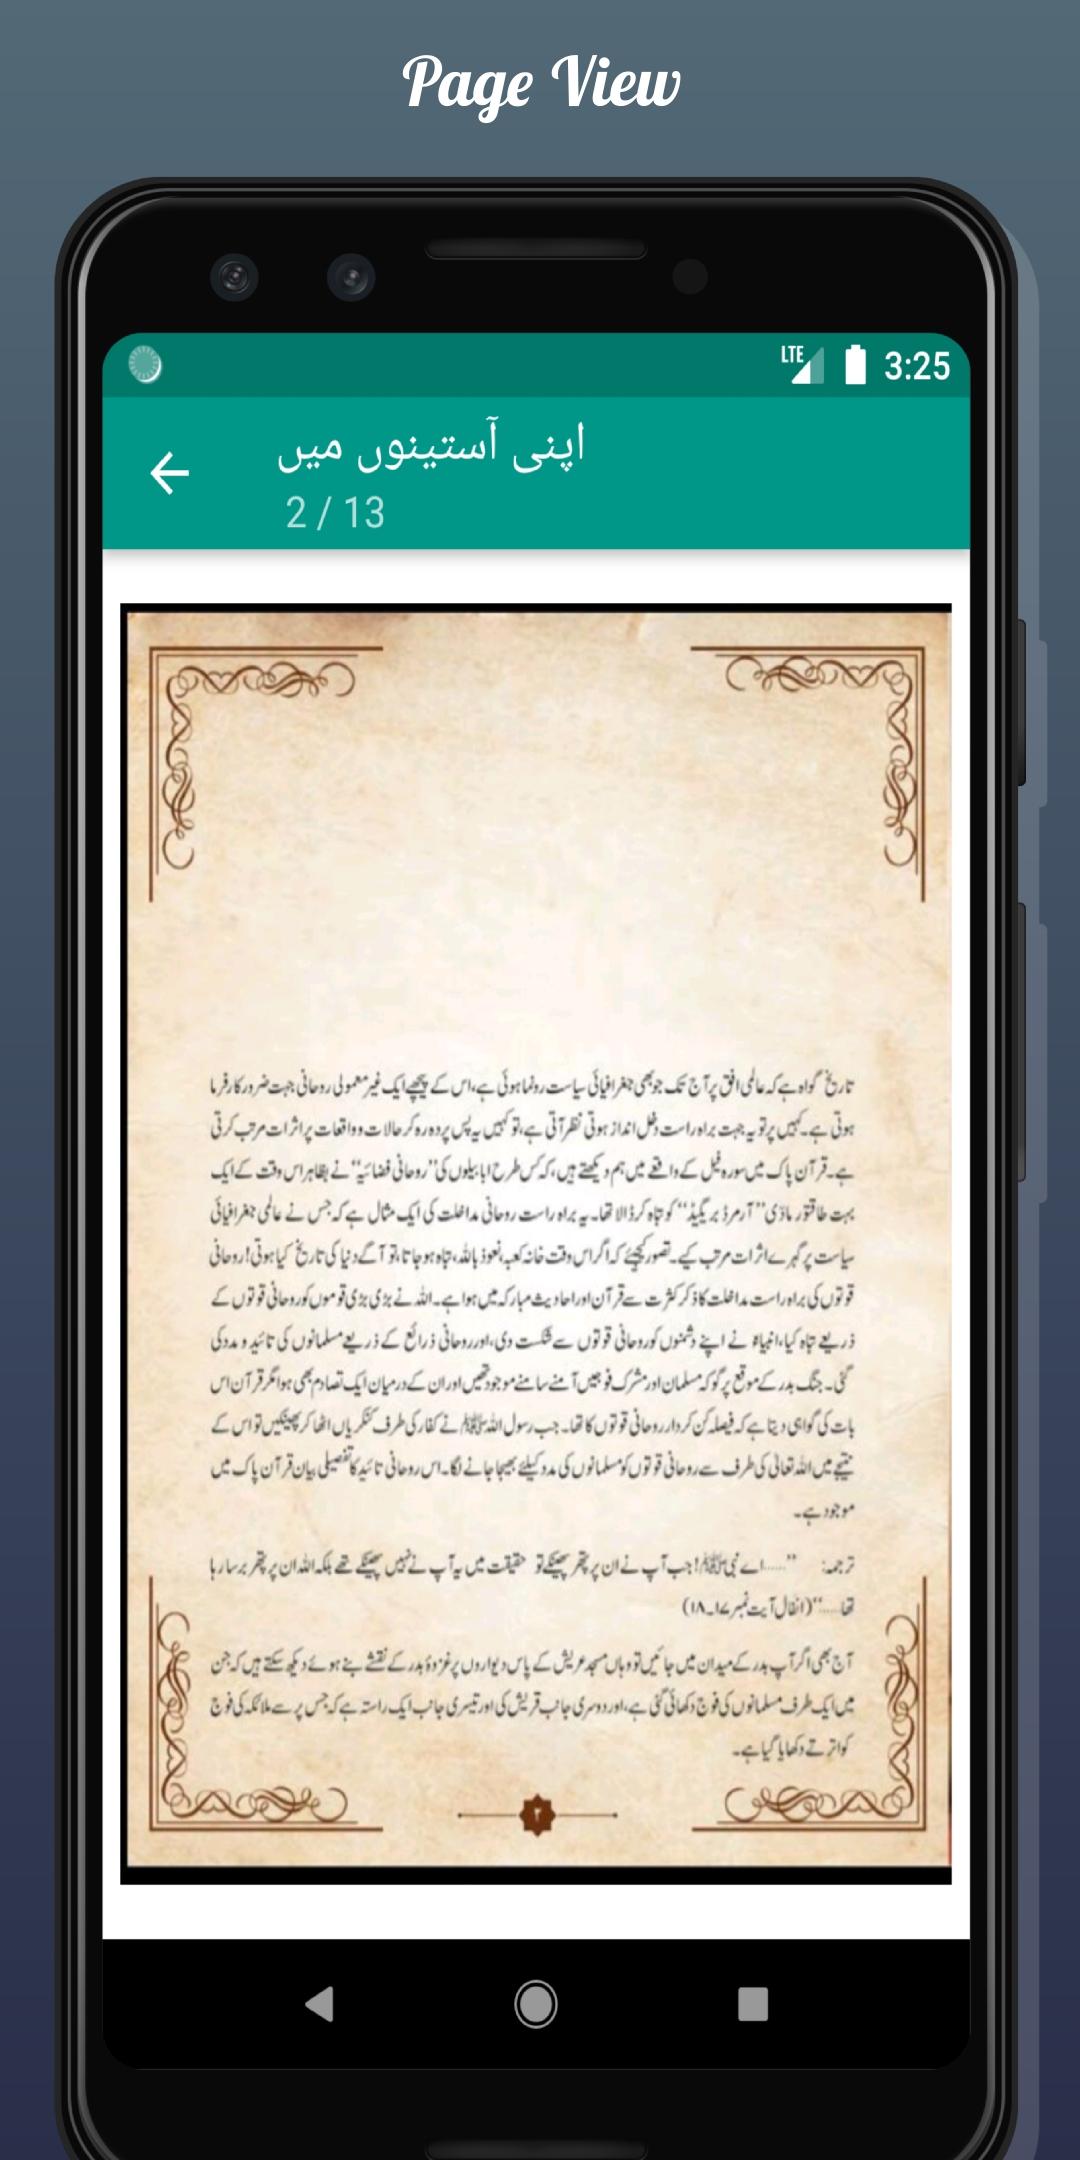 Page View
LTE 3:25
اپنی آستینوں میں
2 / 13
تاریخ گواہ ہے کہ عالمی افق پر آج تک جو بھی جغرافیائی سیاست رونما ہوئی ہے، اس کے پیچھے ایک غیر معمولی روحانی جہت ضرور کارفرما
ہوتی ہے۔ کہیں پر تو یہ جہت براہ راست دخل انداز ہوتی نظر آتی ہے، تو کہیں یہ پس پردہ رہ کر حالات و واقعات پر اثرات مرتب کرتی
ہے۔ قرآن پاک میں سورہ فیل کے واقعے میں ہم دیکھتے ہیں، کہ کس طرح ابابیلوں کی ’’روحانی فضائیہ‘‘ نے بظاہر اس وقت کے ایک
بہت طاقتور مادّی ’’آرمرڈ بریگیڈ‘‘ کو تباہ کر ڈالا تھا۔ یہ براہ راست روحانی مداخلت کی ایک مثال ہے کہ جس نے عالمی جغرافیائی
سیاست پر گہرے اثرات مرتب کیے۔ تصور کیجئے کہ اگر اس وقت خانہ کعبہ، نعوذ باللہ، تباہ ہو جاتا، تو آگے دنیا کی تاریخ کیا ہوتی! روحانی
قوتوں کی براہ راست مداخلت کا ذکر کثرت سے قرآن اور احادیث مبارکہ میں ہوا ہے۔ اللہ نے بڑی بڑی قوموں کو روحانی قوتوں کے
ذریعے تباہ کیا، انبیاءؑ نے اپنے دشمنوں کو روحانی قوتوں سے شکست دی، اور روحانی ذرائع کے ذریعے مسلمانوں کی تائید و مدد کی
گئی۔ جنگ بدر کے موقع پر گو کہ مسلمان اور مشرک فوجیں آمنے سامنے موجود تھیں اور ان کے درمیان ایک تصادم بھی ہوا مگر قرآن اس
بات کی گواہی دیتا ہے کہ فیصلہ کن کردار روحانی قوتوں کا تھا۔ جب رسول اللہ ﷺ نے کفار کی طرف کنکریاں اٹھا کر پھینکیں تو اس کے
نتیجے میں اللہ تعالیٰ کی طرف سے روحانی قوتوں کو مسلمانوں کی مدد کیلئے بھیجا جانے لگا۔ اس روحانی تائید کا تفصیلی بیان قرآن پاک میں
موجود ہے۔
ترجمہ: ’’.....اے نبی ﷺ! جب آپ نے ان پر پتھر پھینکے تو حقیقت میں یہ آپ نے نہیں پھینکے تھے بلکہ اللہ ان پر پتھر برسا رہا
تھا.....‘‘ (انفال آیت نمبر ۱۷۔۱۸)
آج بھی اگر آپ بدر کے میدان میں جائیں تو وہاں مسجد عریش کے پاس دیواروں پر غزوۂ بدر کے نقشے بنے ہوئے دیکھ سکتے ہیں کہ جن
میں ایک طرف مسلمانوں کی فوج دکھائی گئی ہے، اور دوسری جانب قریش کی اور تیسری جانب ایک راستہ ہے کہ جس پر سے ملائکہ کی فوج
کو اترتے دکھایا گیا ہے۔